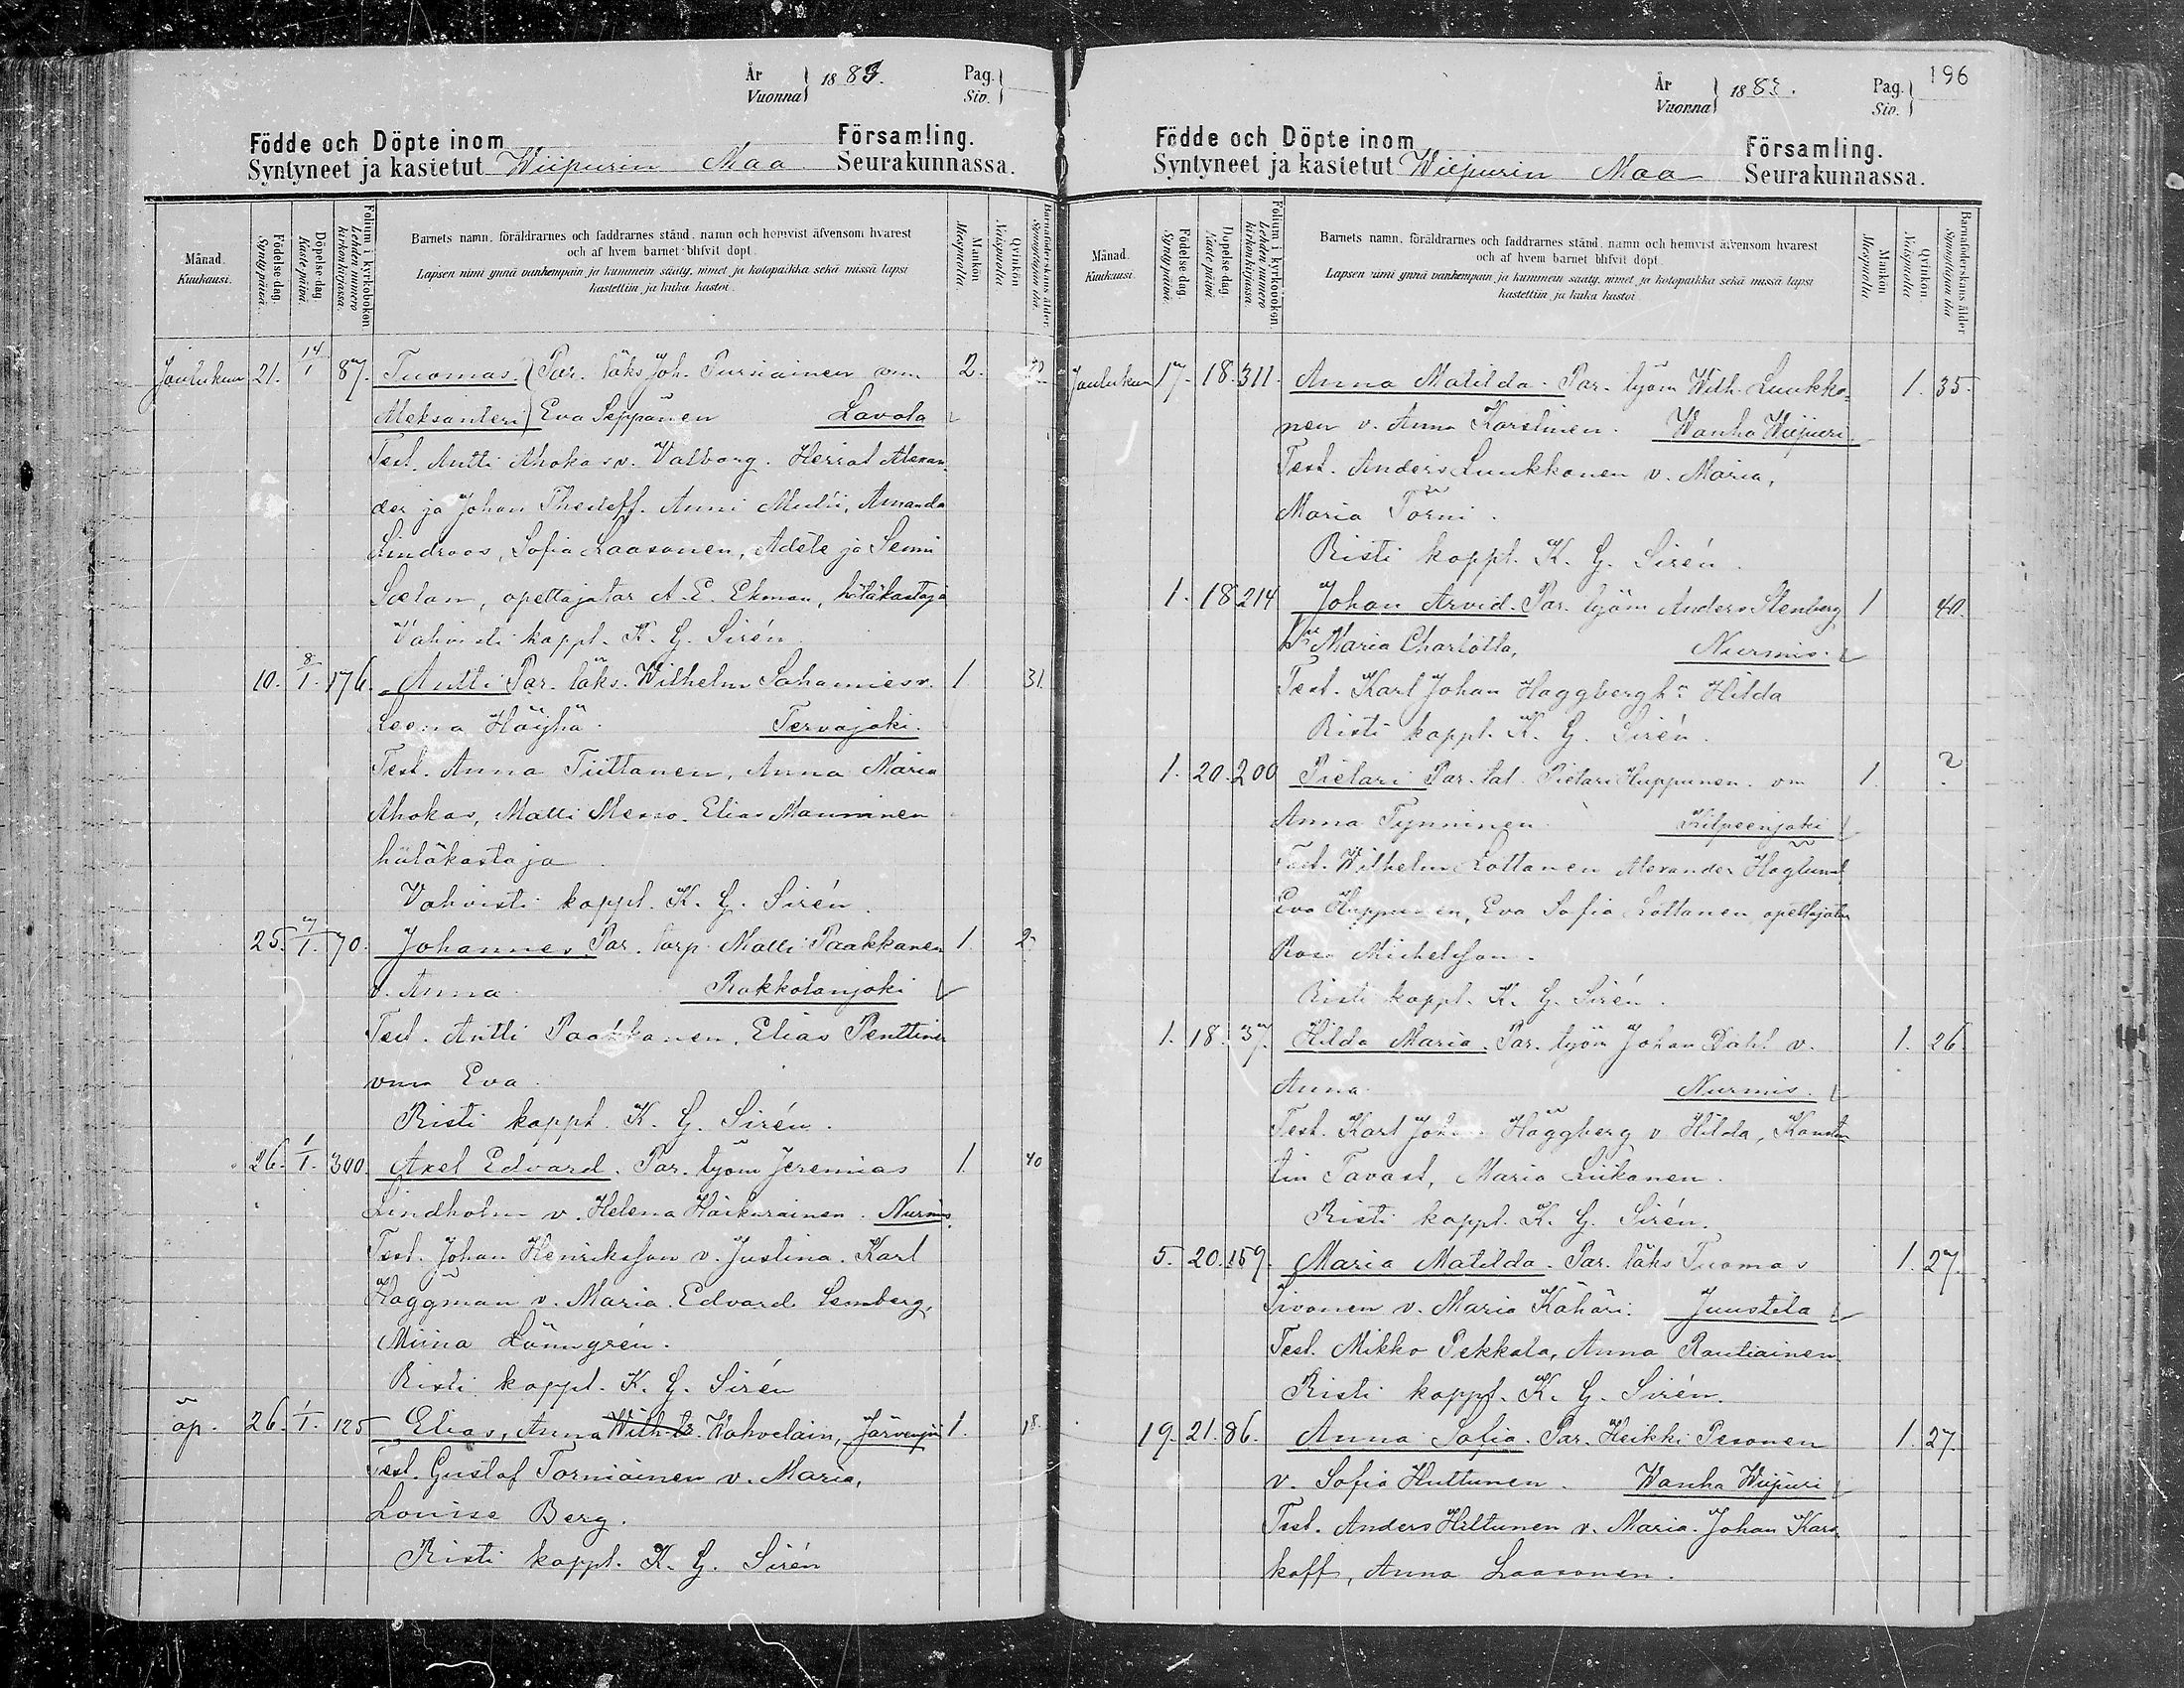 År
Vuonna
1883.
Pag.
Siv.
Födde och Döpte inom
Församling.
Syntyneet ja kastetut Wiipurin Maa Seurakunnassa.
Månad.
Kuukausi.
Födelse dag.
Synty päivä.
Döpelse dag.
Kaste päivä.
Folium i kyrkoboken
Lehden numero
kirkonkirjassa.
Barnets namn, föräldrarnes och faddrarnes stånd, namn och hemvist äfvensom hvarest
och af hvem barnet blifvit döpt.
Lapsen nimi ynnä vanhempain ja kummein sääty, nimet ja kotopaikka sekä missä lapsi
kastettiin ja kuka kastoi.
Mankön
Miespuolia
Qvinkön
Naispuolia
Barnaföderskans ålder.
Synnyttäjän ikä.
Joulukuu 21. 14/1 87. Tuomas Par. läks Joh. Pursiainen vm 2.
Aleksanteri Eva Seppänen Lavola
Test. Antti Ahokas v. Valborg. Herrat Alexan-
der ja Johan Thesleff. Anni Amanda
Lindroos, Sofia Laasonen, Adéle ja Senni
Saelan, opettajatar A. E. Ekman, hätäkastaja
Vahvisti kappl. K. G. Sirén
10. 8/1. 176. Antti Par. läks. Wilhelm Sahamies v. 1. 31.
Leena Häyhä. Tervajoki.
Test. Anna Tiittanen, Anna Maria
Ahokas, Matti Elias Manninen
hätäkastaja
Vahvisti kappl. K. G. Sirén.
25. 7/1. 70. Johannes. Par. torp. Matti Paakkanen 1. 2.
v. Anna Rakkolanjoki
Test. Antti Paakkanen, Elias Penttinen
vm Eva.
Risti kappl. K. G. Sirén.
26. 1/1. 300. Axel Edvard. Par. työm Jeremias 1. 40
Lindholm v. Helena Härkönainen. Nurmis.
Test. Johan Henriksson v. Justina. Karl
Häggman v. Maria. Edvard Lemberg,
Miina Lönngrén.
Risti kappl. K. G. Sirén
äp. 26. 1/1. 125 Elias, Anna Wilh. tr. Kahvelain, 1. 18.
Test. Gustaf Torniainen v. Maria,
Louise Berg.
Risti kappl. K. G. Sirén
196
År
Vuonna
1883.
Pag.
Siv.
Födde och Döpte inom
Församling.
Syntyneet ja kastetut Wiipurin Maa Seurakunnassa.
Månad.
Kuukausi.
Födelse dag.
Synty päivä.
Döpelse dag.
Kaste päivä.
Folium i kyrkoboken
Lehden numero
kirkonkirjassa
Barnets namn, föräldrarnes och faddrarnes stånd, namn och hemvist äfvensom hvarest
och af hvem barnet blifvit döpt.
Lapsen nimi ynnä vanhempain ja kummein sääty, nimet ja kotopaikka sekä missä lapsi
kastettiin ja kuka kastoi
Mankön
Miespuolia
Qvinkön.
Naispuolia
Barnaföderskans ålder
Synnyttäjän ikä
Joulukuu 17. 18. 311. Anna Matilda. Par. työm Wilh. Luukko- 1. 35.
nen v. Anna Karstinen. Wanha Wiipuri
Test. Anders Luukkonen v. Maria,
Maria Törni.
Risti kappl. K. G. Sirén.
1. 18 214 Johan Arvid. Par. työm Anders Stenberg 1 40.
hu Maria Charlotta, Nurmis.
Test. Karl Johan Haggberg hu Hilda
Risti kappl. K. G. Sirén.
1. 20. 200 Pietari Par. tal. Pietari Huppunen vm 1. 2
Anna Tynninen Kilpeenjoki
Test. Wilhelm Lottanen Alexander Höglund,
Eva Huppunen, Eva Sofia Lottanen, opettajatar
Rosa Michelsson.
Risti kappl. K. G. Sirén.
1. 18. 37. Hilda Maria. Par. työm Johan Dahl v. 1. 26
Anna Nurmis.
Test. Karl Johan Häggberg v. Hilda, Konstan-
tin Tavast, Maria Liikanen.
Risti kappl. K. G. Sirén.
5. 20. 159. Maria Matilda. Par. läks Tuomas 1. 27.
Sivonen v. Maria Kähäri. Juustila
Test. Mikko Pekkala, Anna Rautiainen.
Risti kappl. K. G. Sirén.
19. 21. 86. Anna Sofia. Par. Heikki Pesonen 1. 27.
v. Sofia Huttunen. Wanha Wiipuri
Test. Anders Hiltunen v. Maria. Johan Kars-
koff, Anna Laasonen.